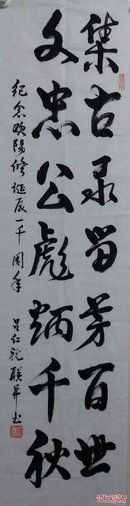 集古录留芳百世
文忠公彪炳千秋
纪念欧阳修诞辰一千周年
吕仁锐联并书